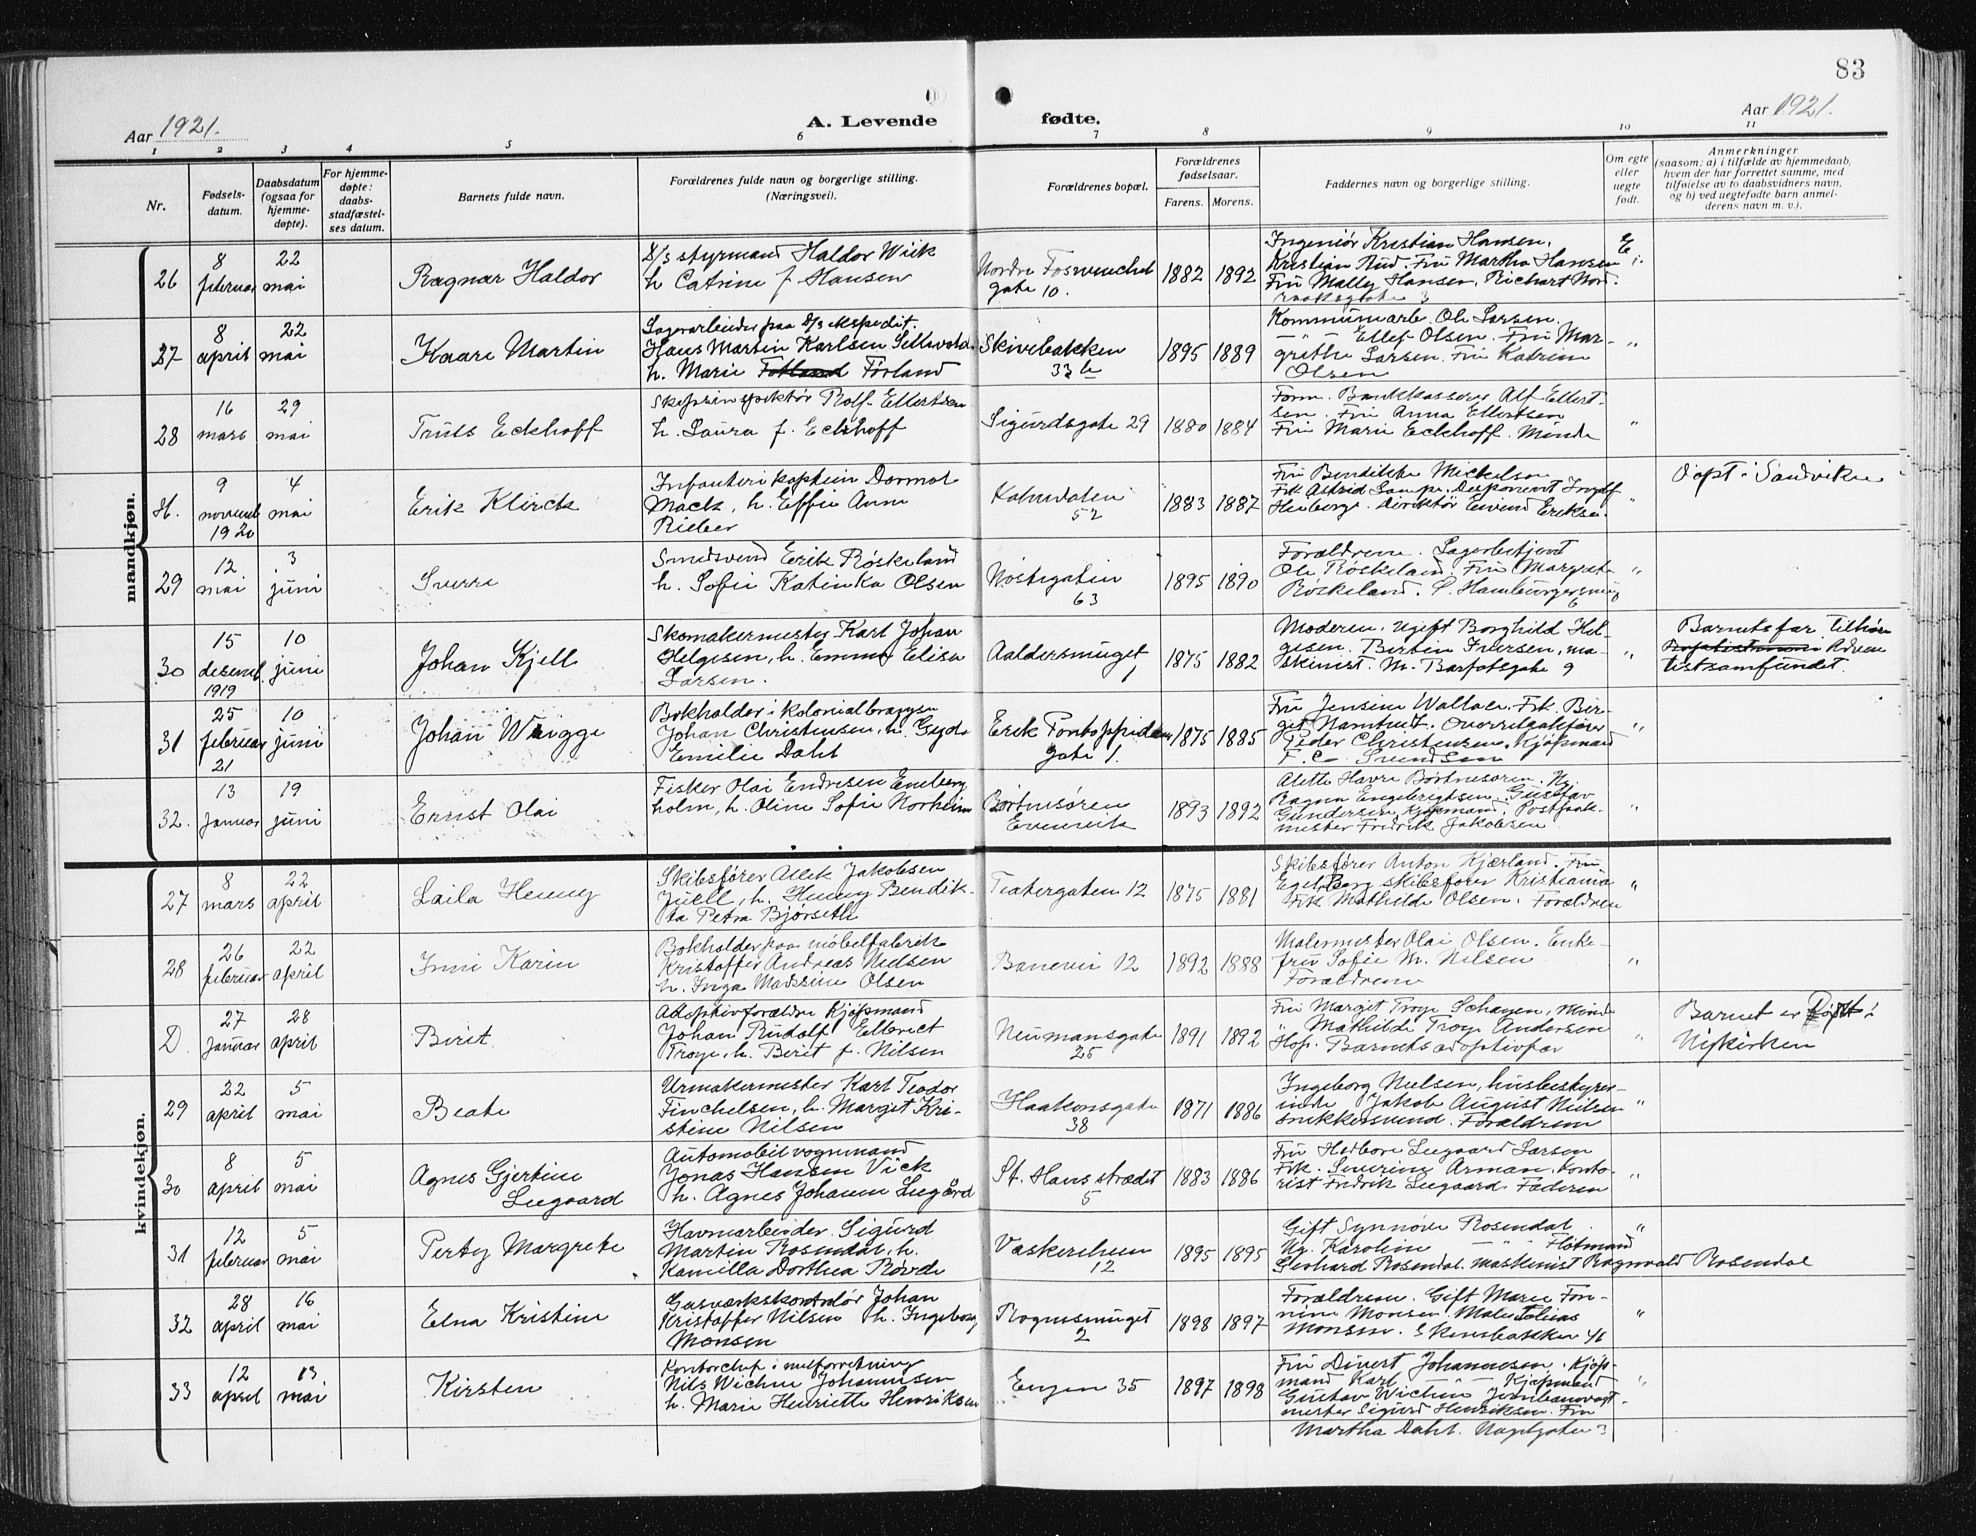 83
Aar 1921.
A. Levende fødte.
Aar 1921.
1 2 3 4 5 6 7 8 9 10 11
Nr.
Fødsels-
datum.
Daabsdatum
(ogsaa for
hjemme-
døpte).
For hjemme-
døpte:
daabs-
stadfæstel-
ses datum.
Barnets fulde navn.
Forældrenes fulde navn og borgerlige stilling.
(Næringsvei).
Forældrenes bopæl.
Forældrenes
fødselsaar.
Farens. Morens.
Faddernes navn og borgerlige stilling.
Om egte
eller
uegte
født.
Anmerkninger
(saasom: a) i tilfælde av hjemmedaab,
hvem der har forrettet samme, med
tilføielse av to daabsvidners navn,
og b) ved uegtefødte barn anmel-
derens navn m. v.).
mandkjøn.
26
8
februar
22
mai
Ragnar Haldor
D/s styrmand Haldor Wiik
h. Catrine f. Hansen
Nordre
gate 10.
1882 1892
Ingeniør Kristian Hansen.
Kristian Rud. Fru Martha Hansen
Fru Mally Hansen, Richart Nord-
raaksgate 3
E.
27
8
april
22
mai
Kaare Martin
Lagerarbeider paa D/s ekspedit.
Hans Martin Karlsen
h. Marie Førland
Skivebakken
33 b
1895 1889
Kommunearb. Ole Larsen.
—"— Ellef Olsen. Fru Mar-
grethe Larsen. Fru Katrine
Olsen
"
28
16
mars
29
mai
Truls Eckhoff
Skipsinspektør Rolf Ellertsen
h. Laura f. Eckhoff
Sigurdsgate 29
1880 1884
Form. Bankkasserer Alf Ellert-
sen. Fru Anna Ellertsen
Fru Marie Eckhoff. Minde
"
H.
9
novemb
1920
4
mai
Erik Klerck
Infanteri kaptein
Mack, h. Effie Ann
Rieber
Kalvedalen
52
1883 1887
Fru Bendikte Mickelsen
Frk Astrid Disponent
Direktør Eivind Eriksen.
"
Døpt i Sandviken
29
12
mai
3
juni
Sverre
Smedsvend Erik Røskeland
h. Sofie Katinka Olsen
Nøstegaten
63
1895 1890
Forældrene. Lagerbetjent
Ole Røskeland. Fru Margrete
Røskeland. L. Hamburgersmug
6
"
30
15
desemb.
1919
10
juni
Johan Kjell
Skomakermester Karl Johan
Helgesen, h. Emma Elise
Larsen.
Aaldersmuget
1
1875 1882
Moderen. Ugift Borghild Hel-
gesen. Birten Iversen, ma-
skinist. M. Barfotsgate 9
"
Barnetsfar tilhører
Adven
tistsamfundet.
31
25
februar
21
10
juni
Johan Wrigge
Bokholder i kolonialbranse
Johan Christensen, h. Gyda
Emilie Dahl
Erik Pontoppidans
gate 1.
1875 1885
Fru Jensine Wallace. Frk. Bir-
git Namtvet.
Peder Christensen. Kjøpmand
F. C. Svendsen
"
32.
13
januar
19
juni
Ernst Olai
Fisker Olai Endresen
holm, h. Oline Sofie Norheim
Børtnesøren
Evenvik
1893 1892
Alette Havre Børtnesøren. Ug.
Ragna Engebrigtsen. Gustav
Gundersen, kjøpmand. Postpak-
mester Fredrik Jakobsen
"
kvindekjøn.
27
8
mars
22
april
Laila Henny
Skibsfører Jakobsen
Juell, h. Henny Bendik-
ta Petra Bjørseth
Teatergaten 12
1875 1881
Skibsfører Anton Kjærland. Fru
skibsfører Kristiania
Frk Mathilde Olsen. Forældren
"
28
26
februar
22
april
Inni Karin
Bokholder paa møbelfabrik
Kristoffer Andreas Nielsen
h. Inga Madsine Olsen
Baneveien 12
1892 1888
Malermester Olai Olsen. Enke-
fru Sofie M. Nilsen
Forældrene
"
D.
27
januar
28
april
Berit
Adoptivforældre Kjøpmand
Johan Rudolf Ellerect
Troye, h. Berit f. Nilsen
Neumansgate
25
1891 1892
Fru Marget Troye Schagen, Minde
" Mathilde Troye Andersen
Hop. Barnets adoptivfar
"
Barnet er døpt i
Nykirken
29
22
april
5
mai
Beate
Urmakermester Karl Teodor
Finchelsen, h. Marget Kri-
stine Nilsen
Haakonsgate
38
1871 1886
Ingeborg Nielsen, husbestyrer-
inde Jakob August Nielsen
snikkersvend. Forældrene
"
30
8
april
5
mai
Agnes Gjertine
Leegaard
Automobilvognmand
Jonas Hansen Vick
h. Agnes Johanne Leegård
St. Hans strædet
5
1883 1886
Fru Hedborg Leegaard Larsen
Frk. Severine Arman. konto-
rist Fredrik Leegaard. Faderen
"
31
12
februar
5
mai
Perty Margrete
Havnearbeider Sigurd
Martin Rosendal, h.
Kamilla Dorthea Røvde
Vaskerelven
12
1895 1895
Gift Synnøve Rosendal.
Ug. Karoline —"— Flotmand
Gerhard Rosendal. Maskinist Ragnvald Rosendal
"
32
28
april
16
mai
Elna Kristine
Gasværkskontrolør Johan
Kristoffer Nilsen h. Ingeborg
Monsen
Rognesmuget
2
1898 1897
Forældrene. Gift Marie For-
nine Monsen. Maler Tobias
Monsen. Skivebakken 46
"
33
12
april
13
mai
Kirsten
Kontorchef i melforretning
Nils Wichne Johannesen
h. Marie Henriette Henriksen
Engen 35
1897 1898
Fru Divert Johannesen. Kjøp-
mand Karl —"— Kjøpmand
Gustav Wichne Jernbanevogt-
mester Sigurd Henriksen. Fru
Martha Dahl.
"